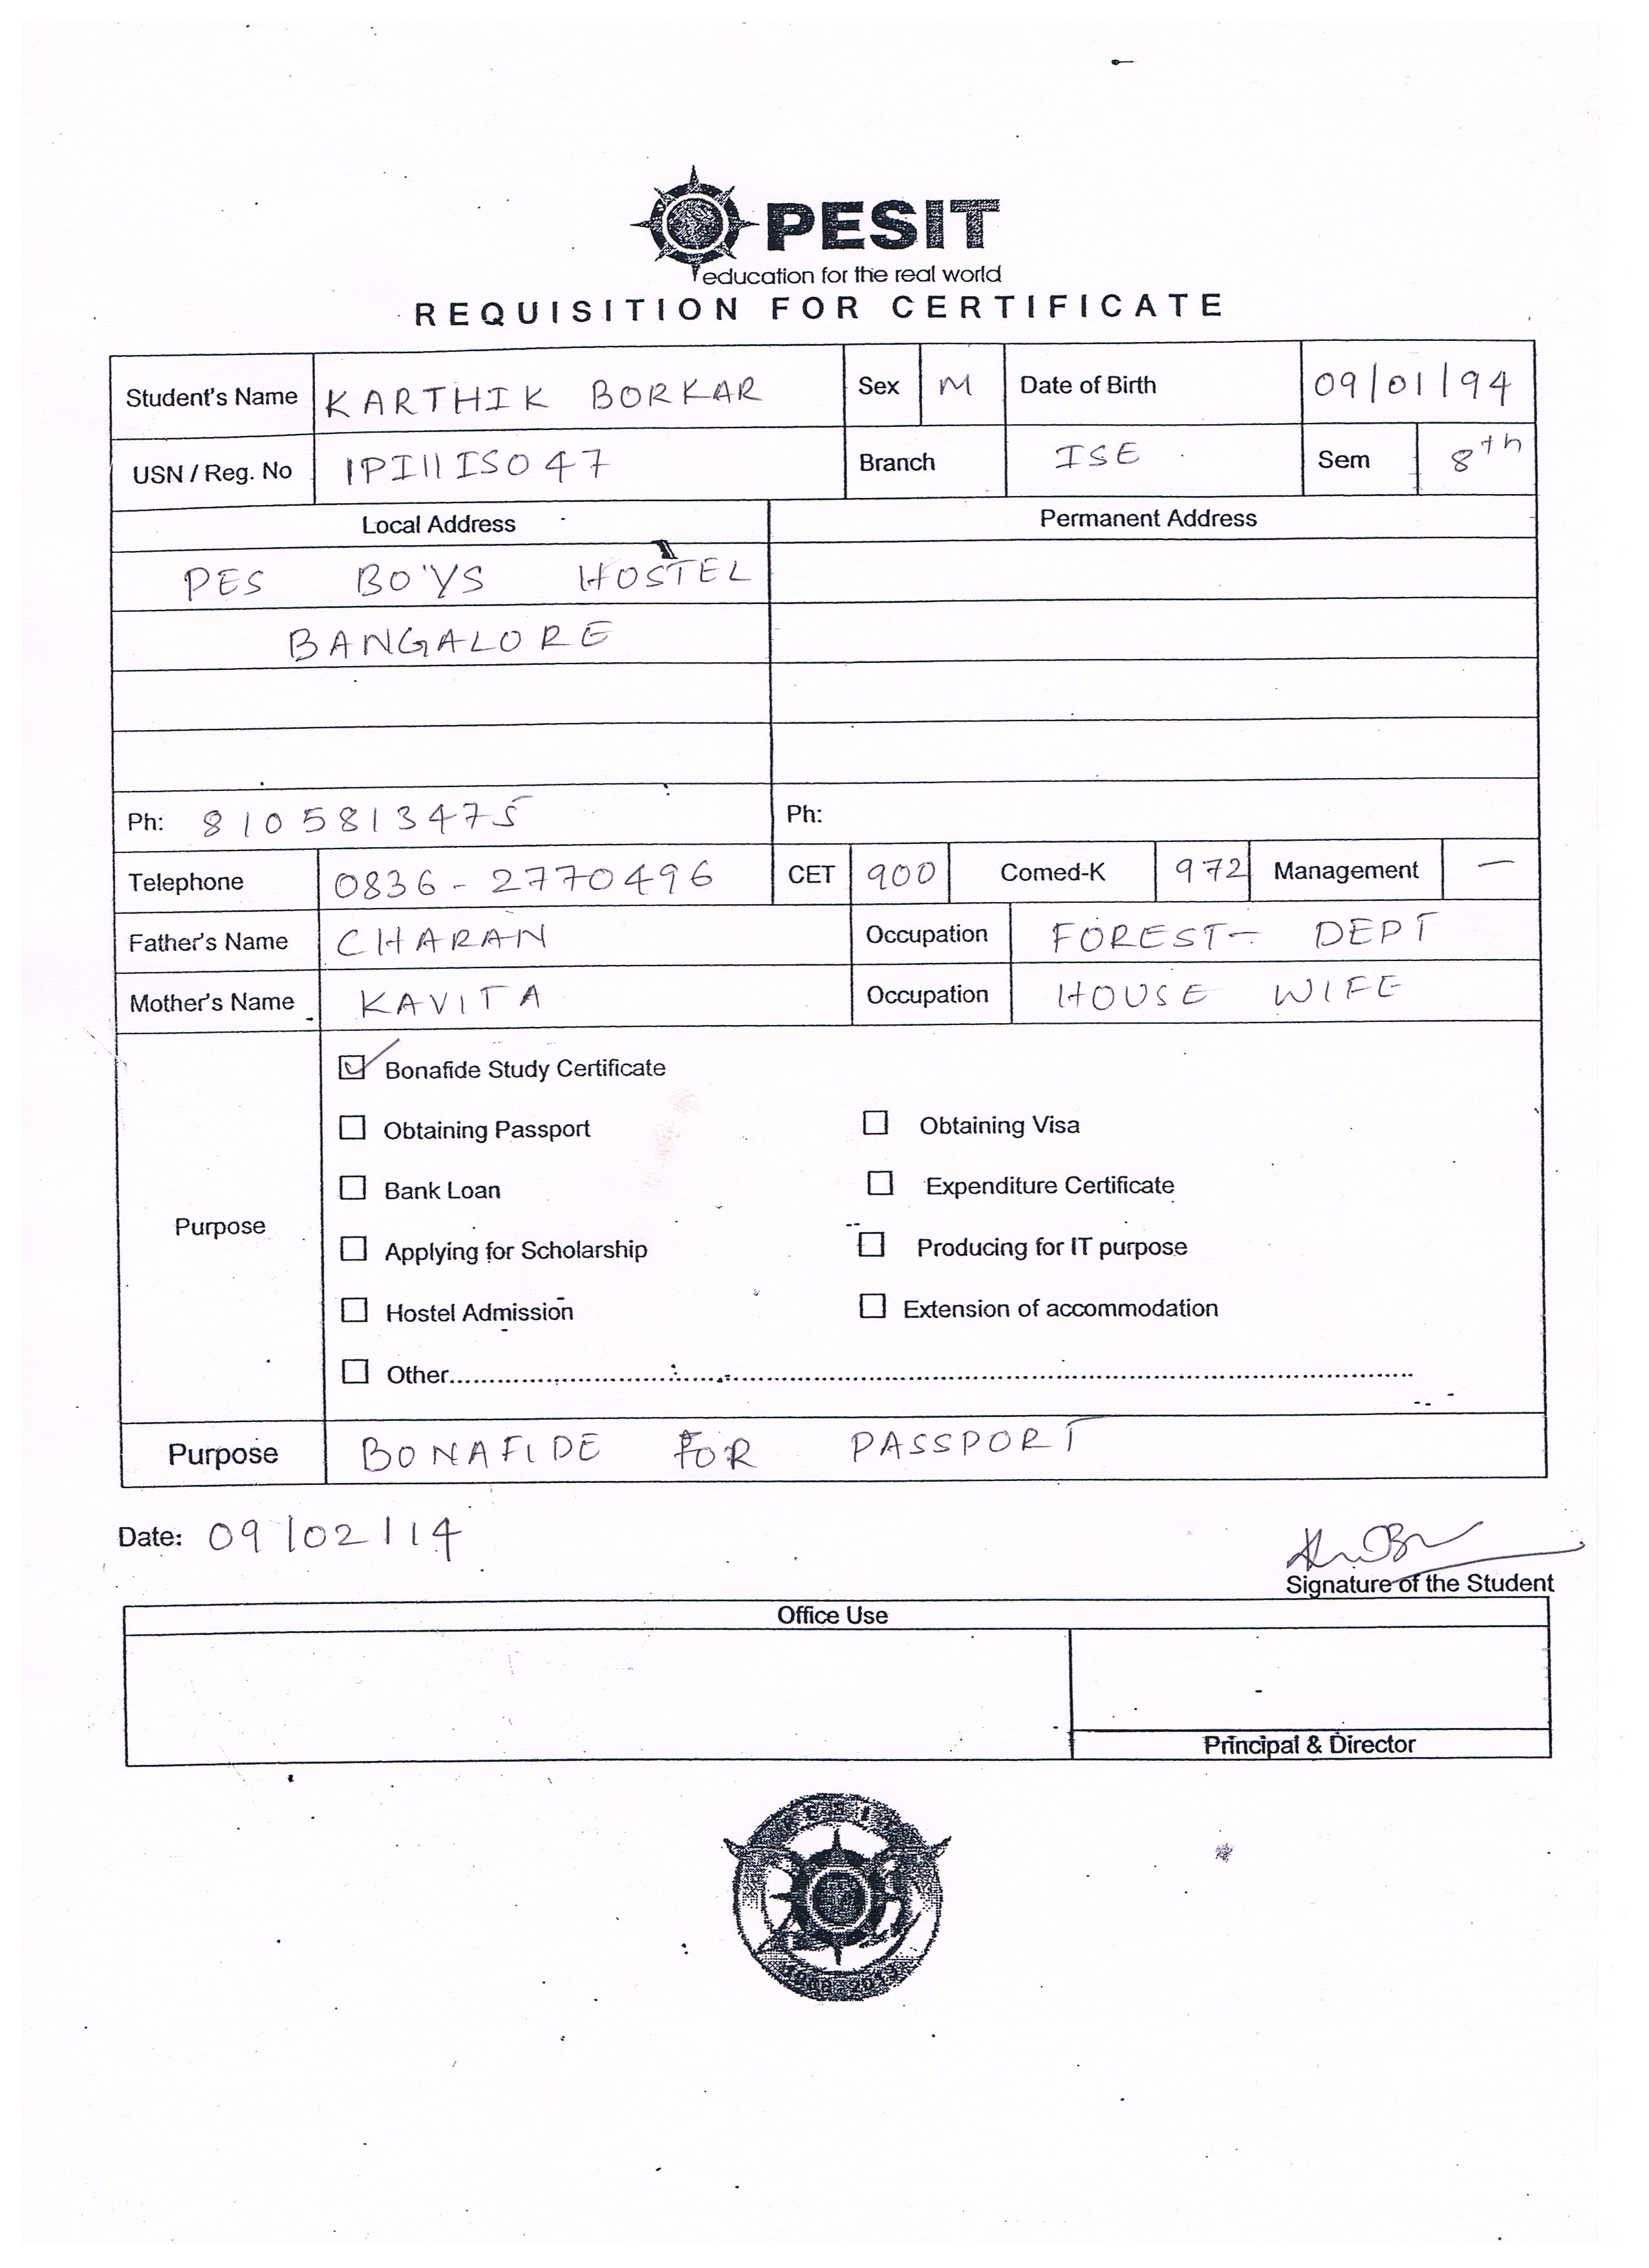 PESIT
education for the real world
REQUISITION FOR CERTIFICATE
Student's Name KARTHIK BORKAR Sex M Date of Birth 09/01/94
USN / Reg. No 1PI11IS047 Branch ISE Sem 8th
Local Address Permanent Address
PES BO'YS HOSTEL
BANGALORE
Ph: 8105813475 Ph:
Telephone 0836-2770496 CET 900 Comed-K 972 Management —
Father's Name CHARAN Occupation FOREST- DEPT
Mother's Name KAVITA Occupation HOUSE WIFE
Purpose
Bonafide Study Certificate
Obtaining Passport Obtaining Visa
Bank Loan Expenditure Certificate
Applying for Scholarship Producing for IT purpose
Hostel Admission Extension of accommodation
Other
Purpose BONAFIDE FOR PASSPORT
Date: 09/02/14
Signature of the Student
Office Use
Principal & Director